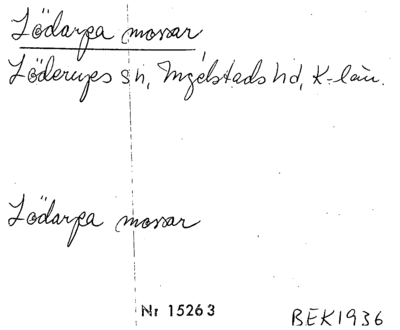 Lödarpa mossar
Löderups sn, Ingelstads hd, K-län.
Lödarpa mossar
Nr 15263
BEK1936